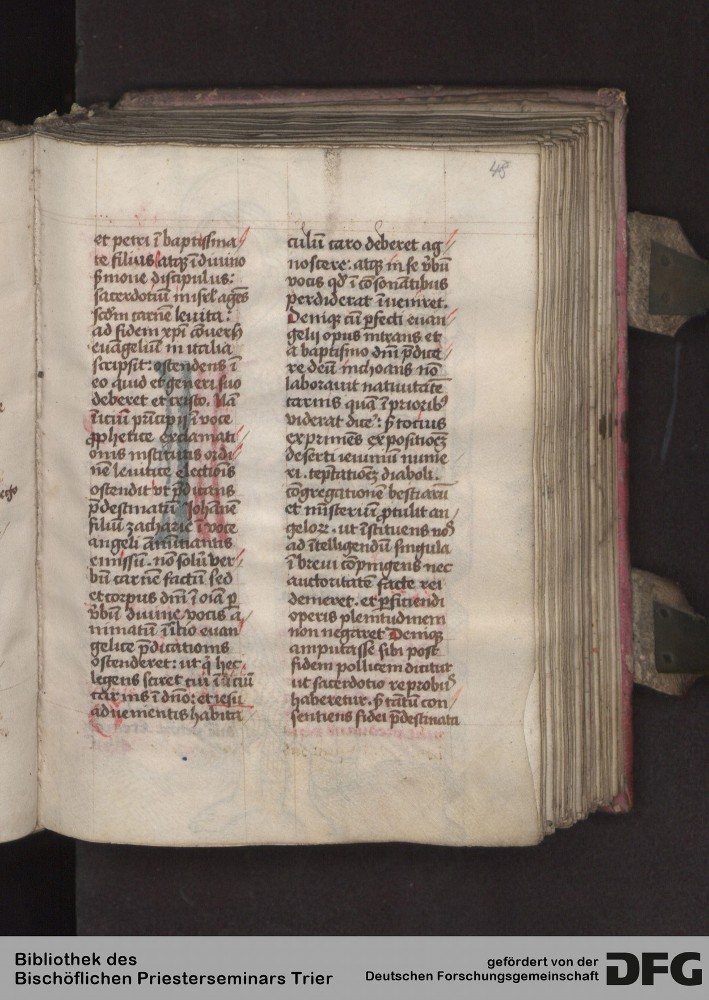 48
et petri ī baptisma
te filius atqꝫ ī diuino
sermone discipulus:
sacerdotiū in isrl̄ agēs
scd̄m carnē leuita:
ad fidem xp̄i cōuersꝰ
euāgeliū in italia
scripsit: ostendens ī
eo quid et generi suo
deberet et cristo. Nā
īiciū prīcipij ī voce
ꝓphetice exclamati
onis instituēs ordi
nē leuitice electiōis
ostendit vt p̄dicans
p̄destinatū Johānē
filiū zacharie ī voce
angeli anūtiantis
emissū. nō solū ver
bū carnē factū sed
et corpus dn̄i ī oīa ꝑ
v̄bū diuine vocis a
nimatū īitio euan
gelice p̄dicationis
ostenderet: ut qͥ hec
legens sciret cui īitiū
carnis ī dn̄o: et iesu
aduenientis habita
culū caro deberet ag
noscere: atqꝫ in se v̄bū
vocis qd̄ ī cōsonātibus
perdiderat īueniret.
Deniqꝫ cū ꝑfecti euan
gelij opus intrans et
a baptismo dn̄i p̄dica
re deū inchoans nō
laborauit natiuitatē
carnis quā ī prioribꝰ
viderat dice: sꝫ totius
exprimēs expositioēꝫ
deserti ieiuniū nume
ri. tēptatioēꝫ diaboli.
cōgregationē bestiarū
et misteriū ꝓtulit an
gelorꝝ. ut īstituens nos
ad ītelligendū singula
ī breui cōpingens nec
auctoritatē facte rei
demeret. et ꝑficiendi
operis plenitudinem
non negaret Deniqꝫ
amputasse sibi post
fidem pollicem dicitur
ut sacerdotio reprobus
haberetur. sꝫ tātū con
sentiens fidei p̄destinata
Bibliothek des
Bischöflichen Priesterseminars Trier
gefördert von der
Deutschen Forschungsgemeinschaft
DFG